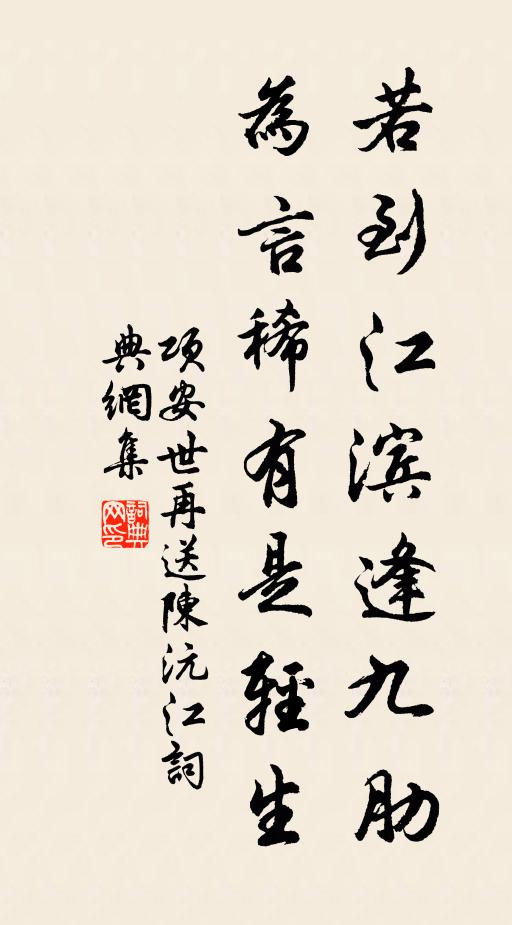 若到江滨逢九肋
為言稀有是輕生
項安世再送陳沅江詞
典網集
詞典网印